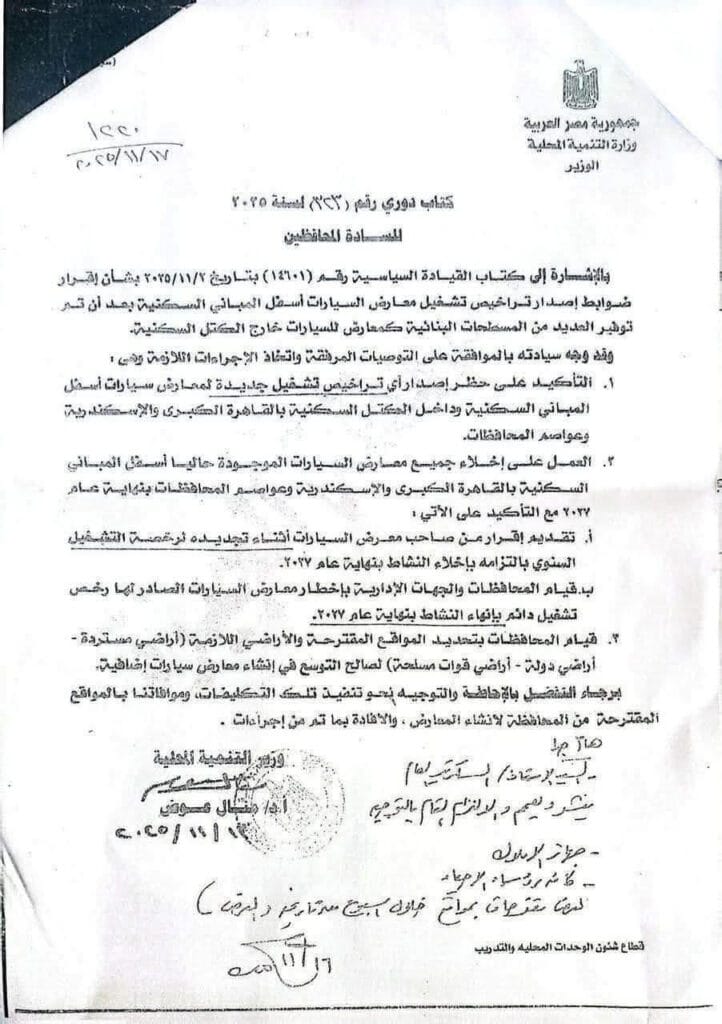 جمهورية مصر العربية
وزارة التنمية المحلية
الوزير
١٢٢٠
٢٠٢٥/١١/١٧
كتاب دوري رقم (٣٢٣) لسنة ٢٠٢٥
للسادة المحافظين
بالإشارة إلى كتاب القيادة السياسية رقم (١٤٦٠١) بتاريخ ٢٠٢٥/١١/٢ بشأن إقرار
ضوابط إصدار تراخيص تشغيل معارض السيارات أسفل المباني السكنية بعد أن تم
توفير العديد من المسطحات البنائية كمعارض للسيارات خارج الكتل السكنية.
وقد وجه سيادته بالموافقة على التوصيات المرفقة واتخاذ الإجراءات اللازمة وهى :
١. التأكيد على حظر إصدار أي تراخيص تشغيل جديدة لمعارض سيارات أسفل
المباني السكنية وداخل الكتل السكنية بالقاهرة الكبرى والإسكندرية
وعواصم المحافظات.
٢. العمل على إخلاء جميع معارض السيارات الموجودة حاليا أسفل المباني
السكنية بالقاهرة الكبرى والإسكندرية وعواصم المحافظات بنهاية عام
٢٠٢٧ مع التأكيد على الآتي :
أ. تقديم إقرار من صاحب معرض السيارات أثناء تجديده لرخصة التشغيل
السنوي بالتزامه بإخلاء النشاط بنهاية عام ٢٠٢٧.
ب. قيام المحافظات والجهات الإدارية بإخطار معارض السيارات الصادر لها رخص
تشغيل دائم بإنهاء النشاط بنهاية عام ٢٠٢٧.
٣. قيام المحافظات بتحديد المواقع المقترحة والأراضي اللازمة (أراضي مستردة -
أراضي دولة - أراضي قوات مسلحة) لصالح التوسع في إنشاء معارض سيارات إضافية.
برجاء التفضل بالإحاطة والتوجيه نحو تنفيذ تلك التكليفات، وموافاتنا بالمواقع
المقترحة من المحافظة لانشاء المعارض ، والافادة بما تم من إجراءات .
وزير التنمية المحلية
أ.د/ منال عوض
٢٠٢٥/١١/١٣
هام جدا
- السيد الاستاذ/ السكرتير العام
ينشر ويعمم والالتزام التام بالتوجيه
- جهاز الاملاك
- كافة رؤساء الاحياء
خلال اسبوع من تاريخه والعرض
١١/١٦
قطاع شئون الوحدات المحليه والتدريب